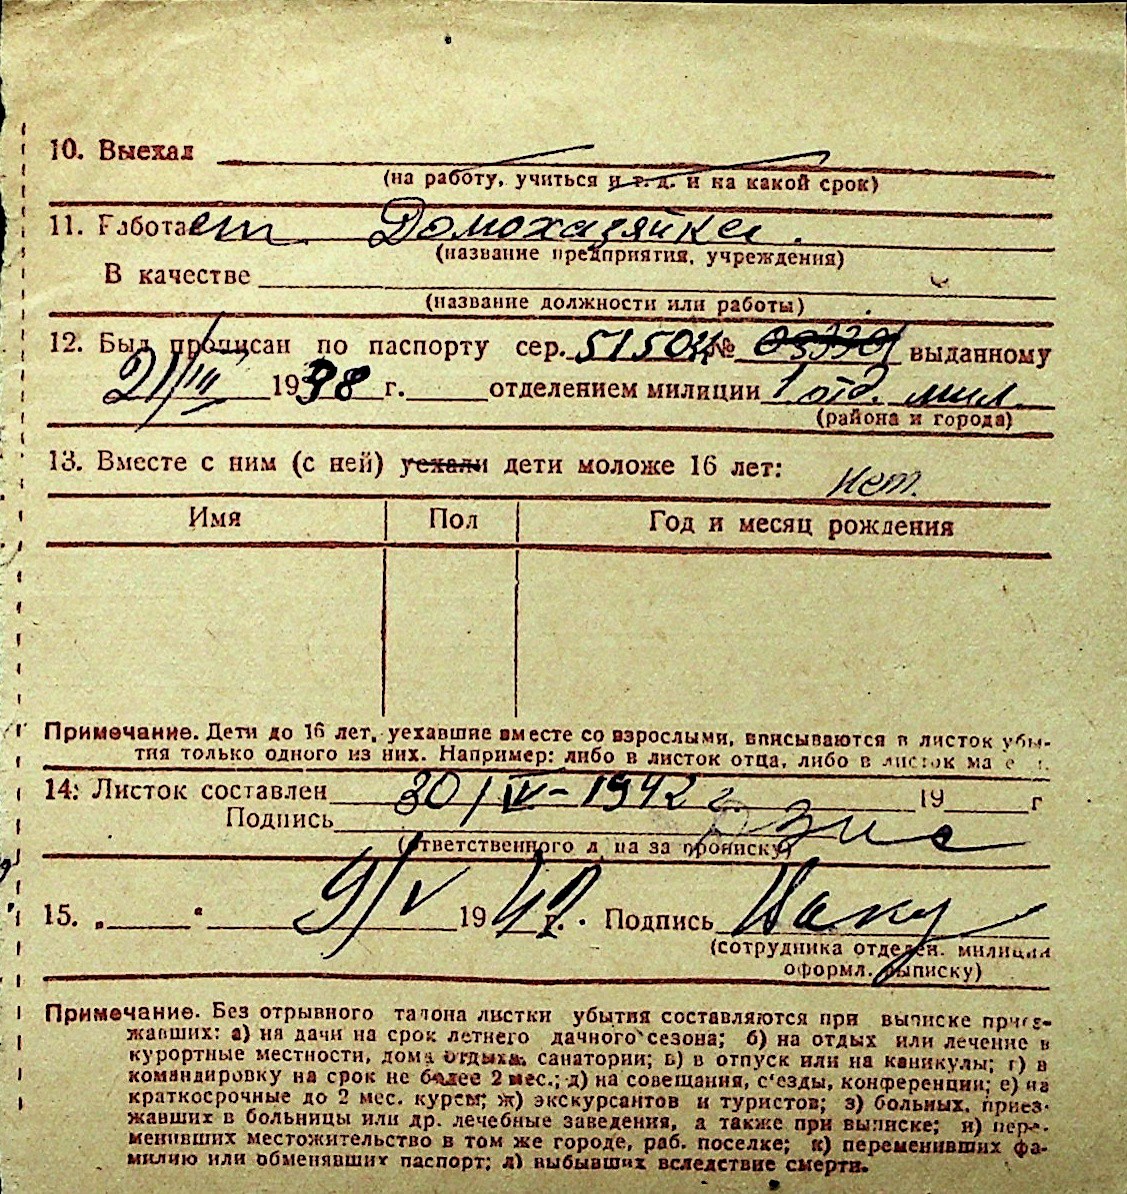 10. Выехал
(на работу, учиться и т. д. и на какой срок)
11. Работает. Домохазяйка.
(название предприятия, учреждения)
В качестве
(название должности или работы)
12. Был прописан по паспорту сер. № выданному
21/III 1938 г. отделением милиции 1 отд. мил.
(района и города)
13. Вместе с ним (с ней) уехали дети моложе 16 лет: нет.
Имя Пол Год и месяц рождения
Примечание. Дети до 16 лет, уехавшие вместе со взрослыми, вписываются в листок убы-
тия только одного из них. Например: либо в листок отца, либо в листок
14. Листок составлен 30/IV-1942 г. 19 г
Подпись
(ответственного лица за прописку)
15. „ “ 9/V 1942 г. Подпись
(сотрудника отделен. милиции
оформл. выписку)
Примечание. Без отрывного талона листки убытия составляются при выписке приез-
жавших: а) на дачи на срок летнего дачного сезона; б) на отдых или лечение в
курортные местности, дома отдыха, санатории; в) в отпуск или на каникулы; г) в
командировку на срок не более 2 мес.; д) на совещания, с'езды, конференции; е) на
краткосрочные до 2 мес. курсы; ж) экскурсантов и туристов; з) больных, приез-
жавших в больницы или др. лечебные заведения, а также при выписке; и) пере-
менивших местожительство в том же городе, раб. поселке; к) переменивших фа-
милию или обменявших паспорт; л) выбывших вследствие смерти.